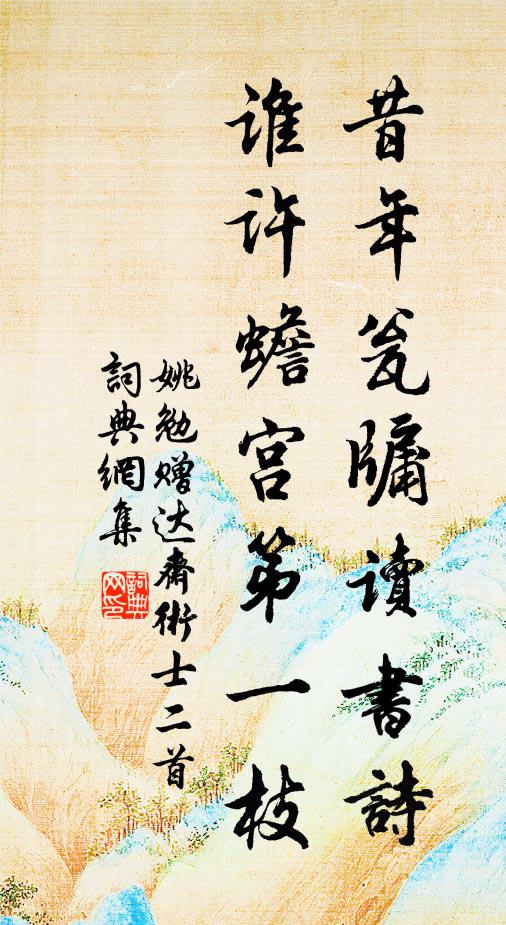 昔年瓮牖讀書詩
谁许蟾宫第一枝
姚勉赠达齋術士二首
詞典網集
詞典网印